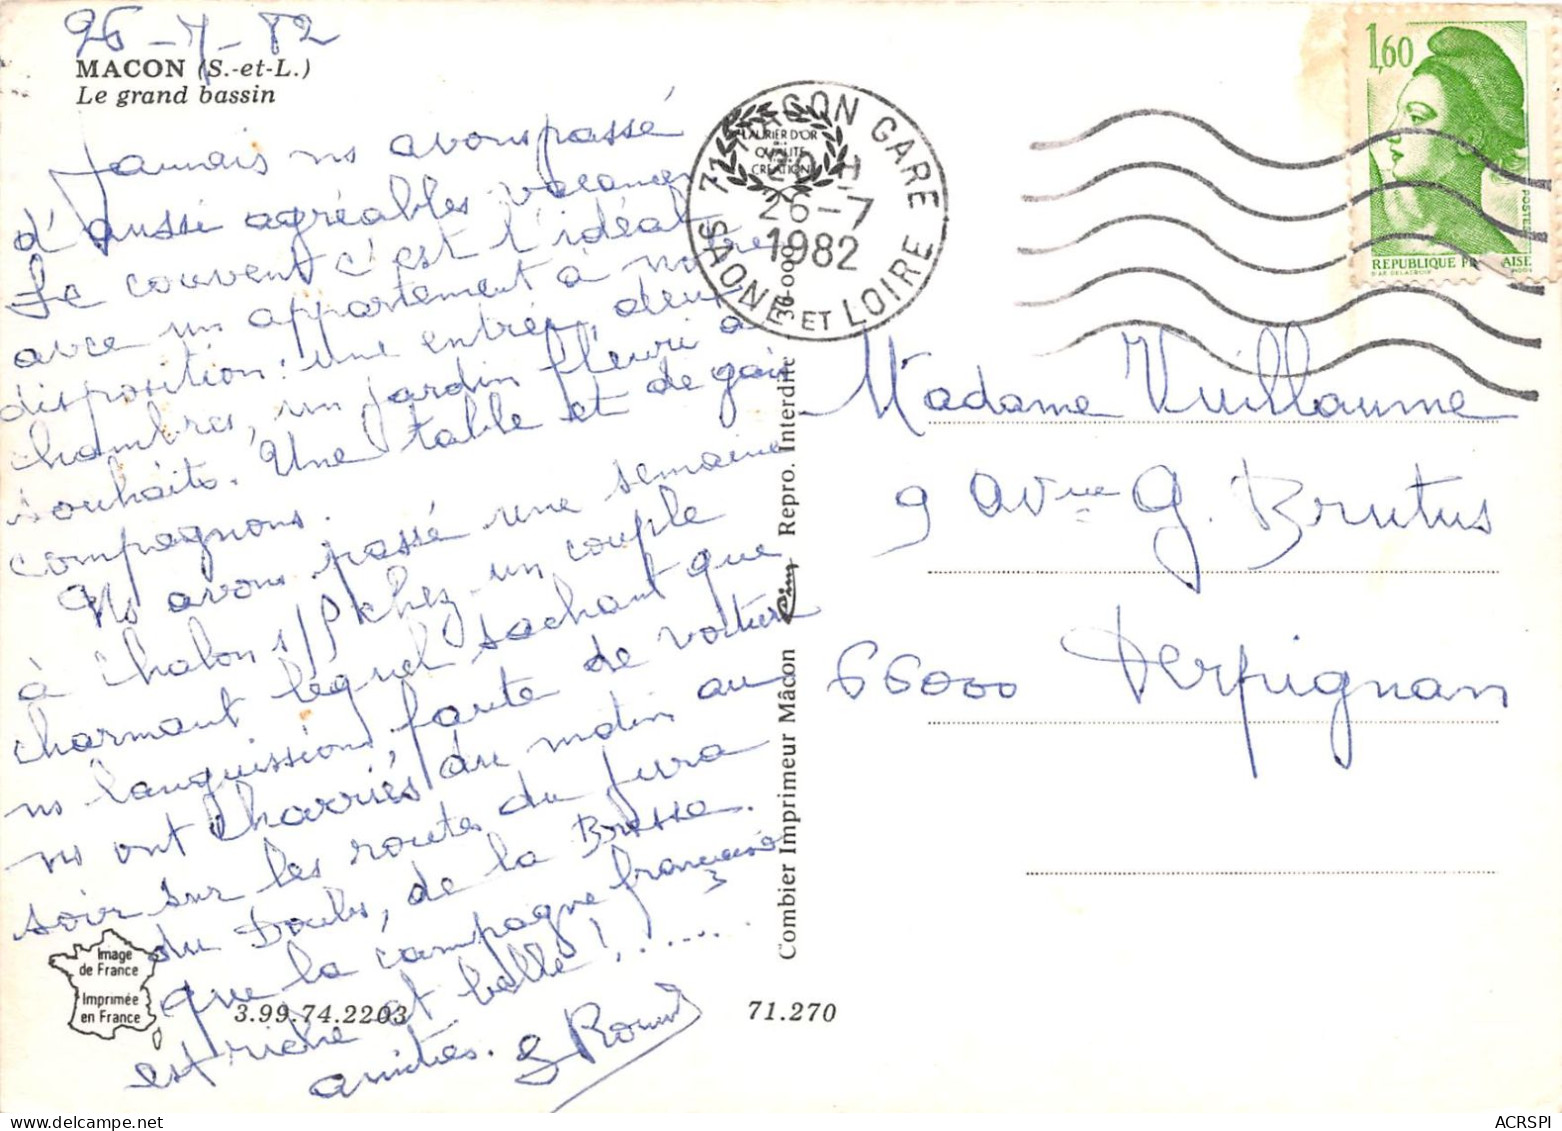 26-7-82
MACON (S.-et-L.)
Le grand bassin
Jamais ns avons passé
d'aussi agréables vacances
Le couvent c'est l'idéal
avec un appartement à notre
disposition : une entrée, deux
chambres, un jardin fleuri à
souhaits. Une table et de gais
compagnons.
Ns avons passé une semaine
à Chalon s/ chez un couple
charmant lequel sachant que
ns languissions, faute de voiture
ns ont charriés du matin au
soir sur les routes du Jura
du Doubs, de la Bresse.
que la campagne française
est riche et belle ! ......
amitiés.
Image
de France
Imprimée
en France
3.99.74.2203
71.270
Combier Imprimeur Mâcon
Repro. Interdite
LAURIER D'OR
QUALITE
CREATION
71 MACON GARE
20 H
26-7
1982
SAONE ET LOIRE
1,60
POSTES
REPUBLIQUE FRANÇAISE
D'AP. DELACROIX
Madame Vuillaume
9 avnue G. Brutus
66000 Perpignan
ACRSPI